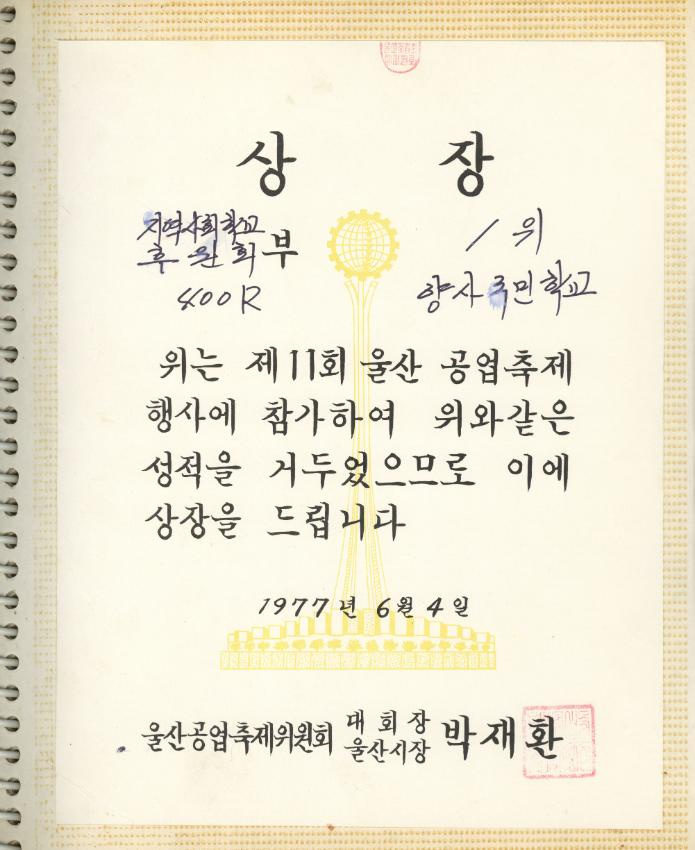 상 장
지역사회학교
후원회 부
1위
400R
양사국민학교
위는 제11회 울산 공업축제
행사에 참가하여 위와같은
성적을 거두었으므로 이에
상장을 드립니다
1977년 6월 4일
울산공업축제위원회 대회장 울산시장 박재환